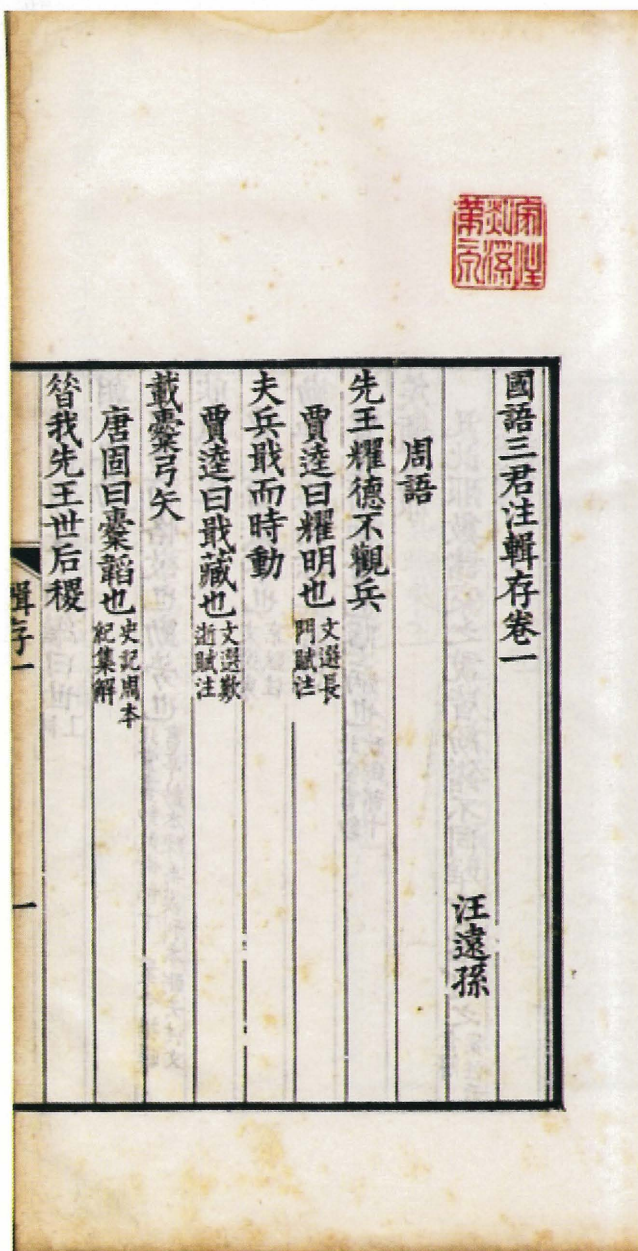 國語三君注輯存卷一
汪遠孫
周語
先王耀德不觀兵
賈逵曰耀明也文選長門賦注
夫兵戢而時動
賈逵曰戢藏也文選歎逝賦注
載櫜弓矢
唐固曰櫜韜也史記周本紀集解
昝我先王世后稷
輯存一
一